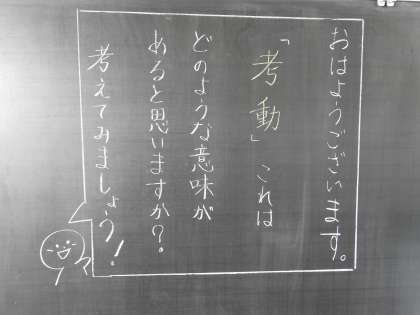 おはようございます。
「考動」これは
どのような意味が
あると思いますか?
考えてみましょう!